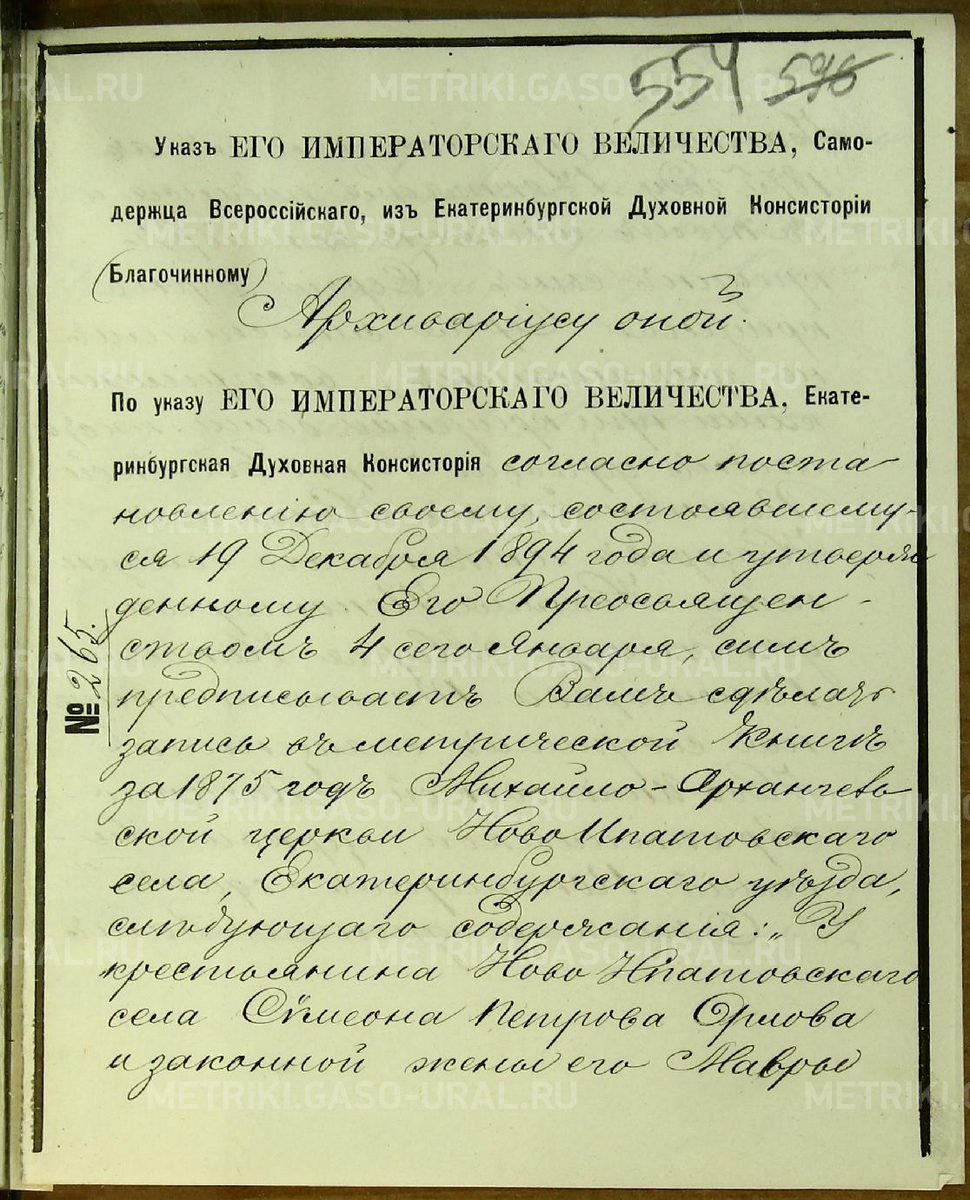 554 596
Указъ ЕГО ИМПЕРАТОРСКАГО ВЕЛИЧЕСТВА, Само-
держца Всероссійскаго, изъ Екатеринбургской Духовной Консисторіи
(Благочинному)
Архиваріусу оной.
По указу ЕГО ИМПЕРАТОРСКАГО ВЕЛИЧЕСТВА, Екате-
ринбургская Духовная Консисторія согласно поста-
новленію своему, состоявшему-
ся 19 Декабря 1894 года и утверж
денному Его Преосвящен-
ствомъ 4 сего Января, симъ
предписываетъ Вамъ сдѣлать
№ 265.
запись въ метрической книгѣ
за 1875 годъ Михайло-Архангель
ской церкви Ново Ипатовскаго
села, Екатеринбургскаго уѣзда,
слѣдующаго содержанія: „У
крестьянина Ново Ипатовскаго
села Сѵмеона Петрова Орлова
и законной жены его Мавры
METRIKI.GASO-URAL.RU